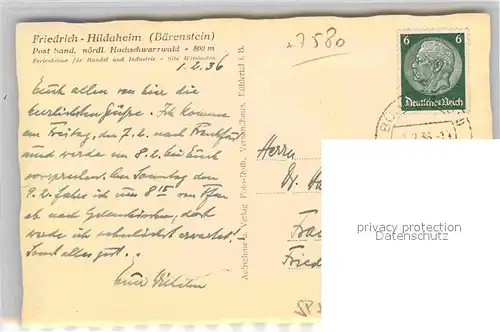 Friedrich - Hildaheim (Bärenstein)
Post Sand, nördl. Hochschwarzwald - 800 m
Ferienheime für Handel und Industrie - Sitz Wiesbaden
1.2.36
+7580
6 6
Deutsches Reich
Euch allen von hier die
herzlichsten Grüsse. Ich komme
am Freitag, den 7.2. nach Frankfurt
und werde am 8.2. bei Euch
vorsprechen. Am Sonntag den
9.2. fahre ich um 8 15 von
ab nach Gelsenkirchen, dort
werde ich sehnlichst erwartet!
Sonst alles gut.
Euer
Aufnahme u. Verlag Foto-Roth, Versandhaus, Bühlertal i. B.
Herrn
Dr.
Fried
privacy protection
Datenschutz